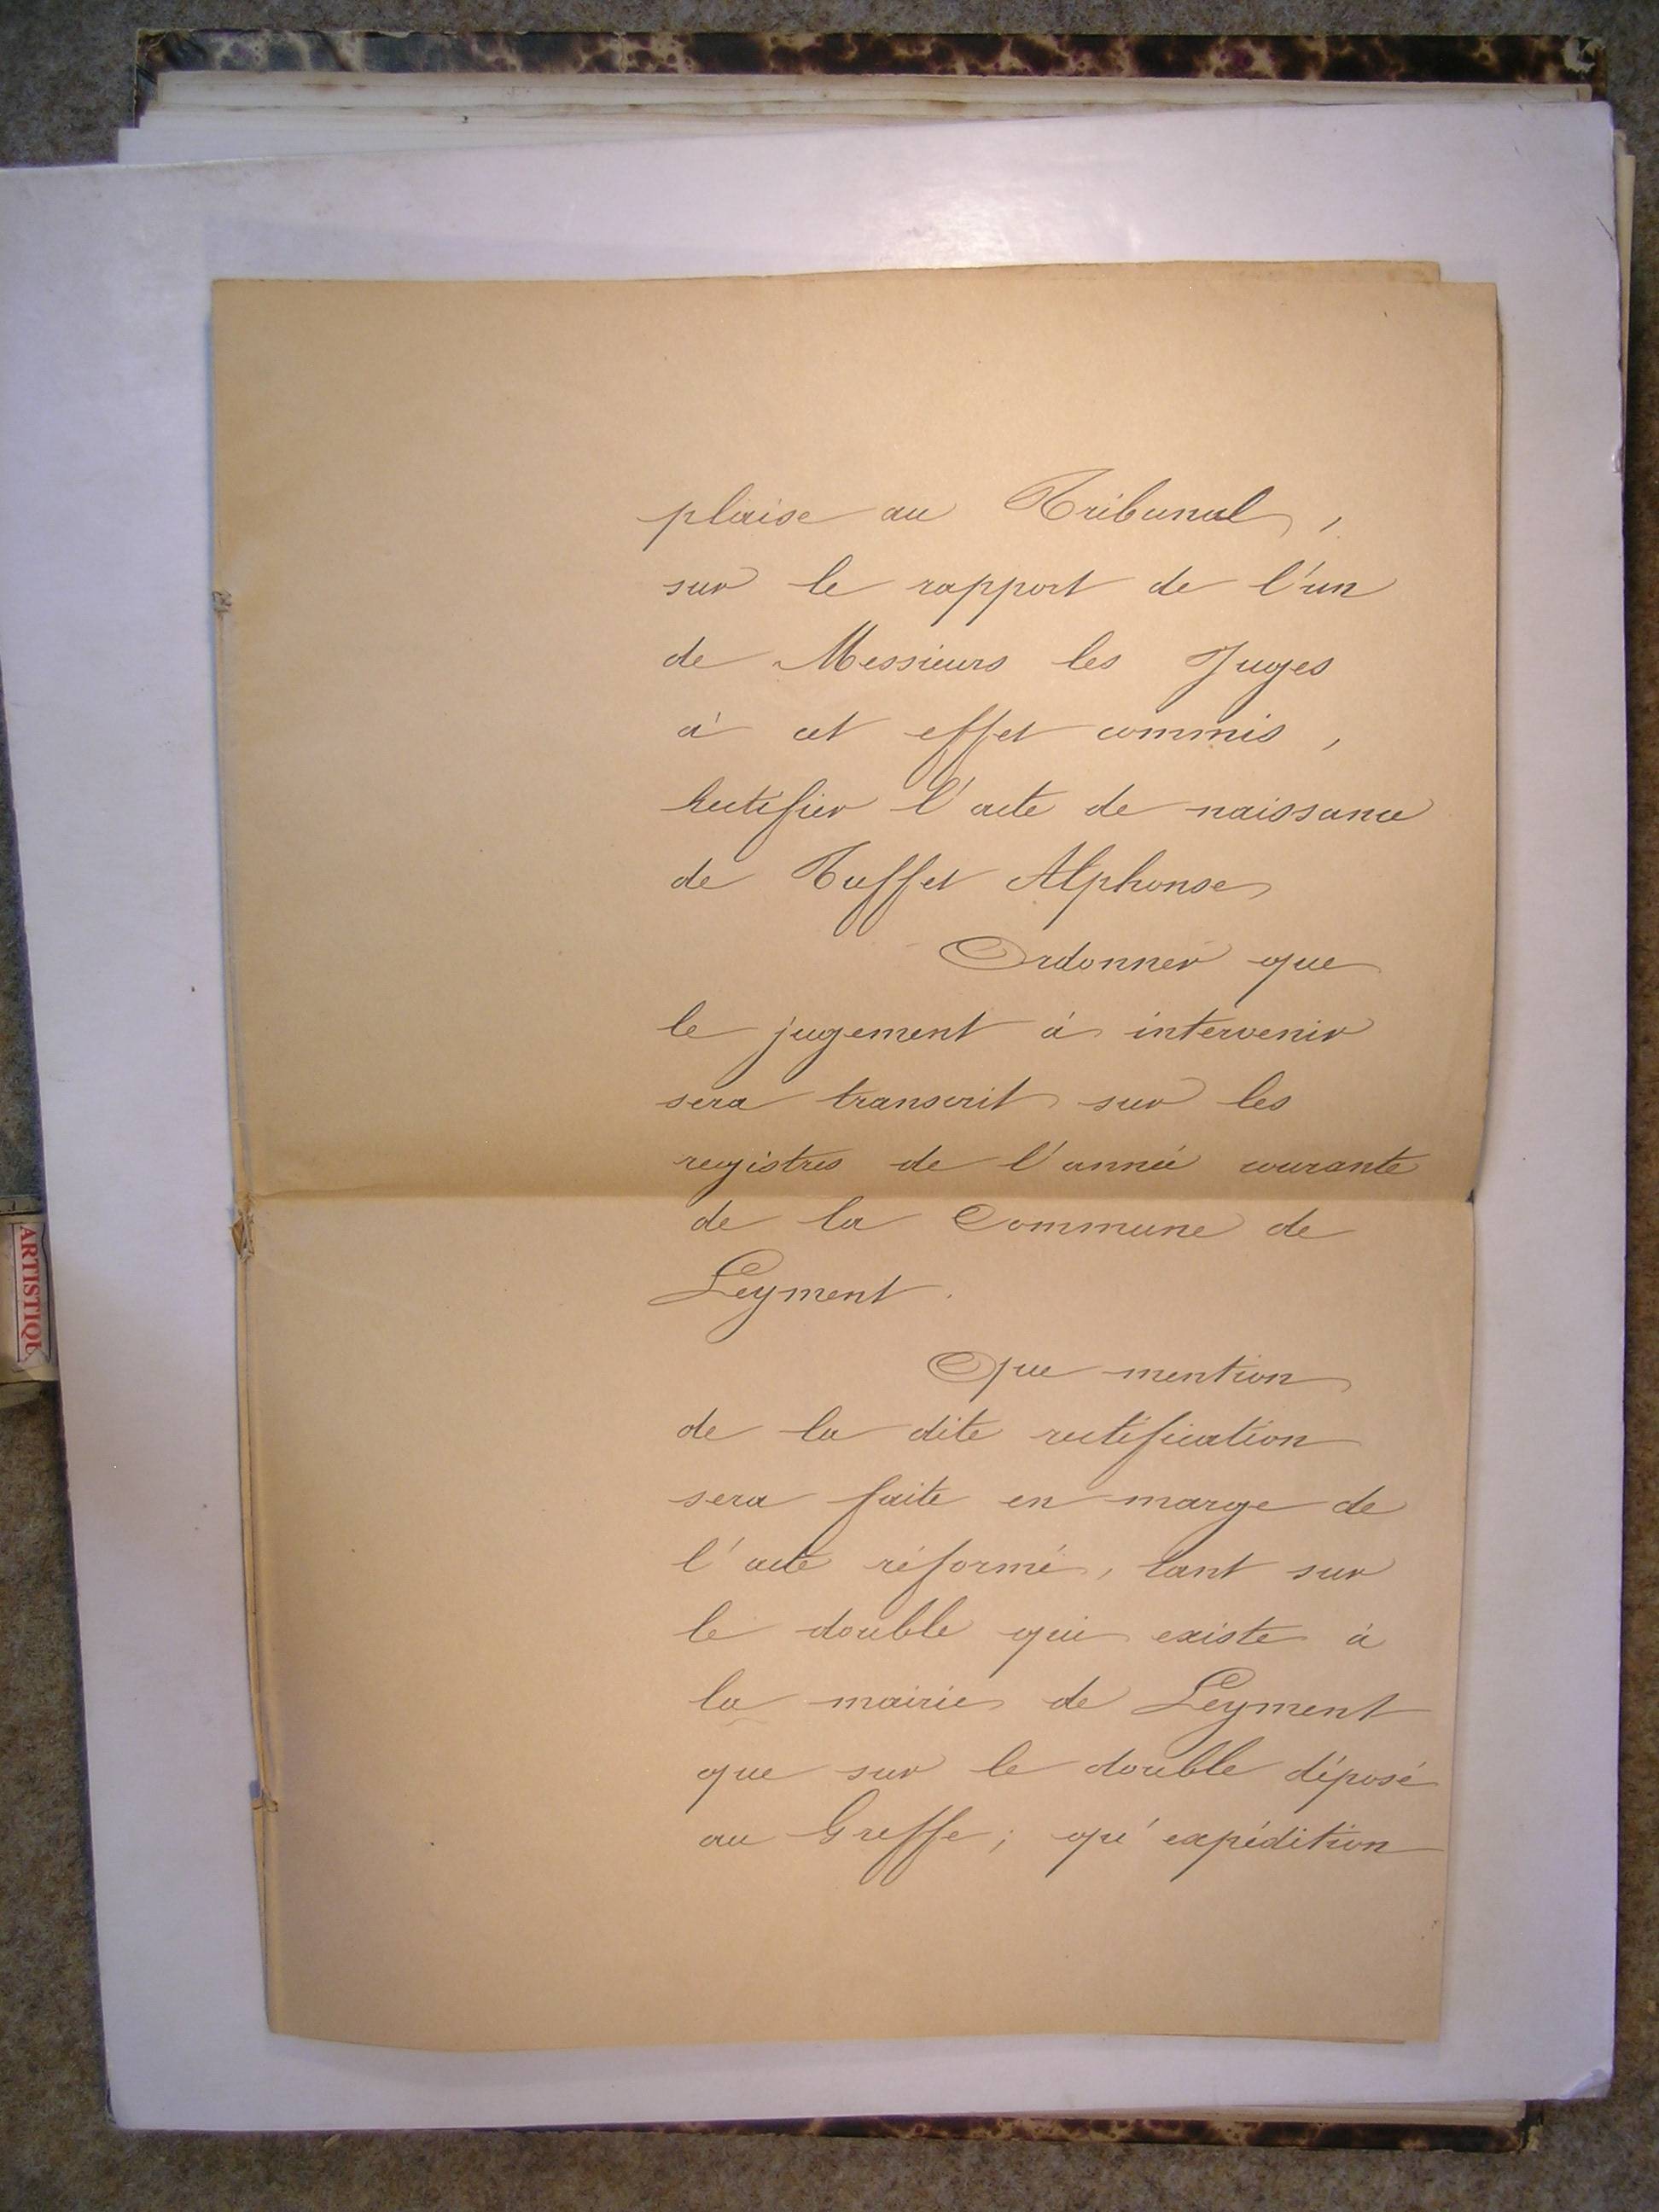 plaise au Tribunal,
sur le rapport de l'un
de Messieurs les Juges
à cet effet commis,
Rectifier l'acte de naissance
de Tuffet Alphonse
Ordonner que
le jugement à intervenir
sera transcrit sur les
registres de l'année courante
de la Commune de
Leyment.
Que mention
de la dite rectification
sera faite en marge de
l'acte réformé, tant sur
le double qui existe à
la mairie de Leyment
que sur le double déposé
au Greffe; qu'expédition
ARTISTIQU